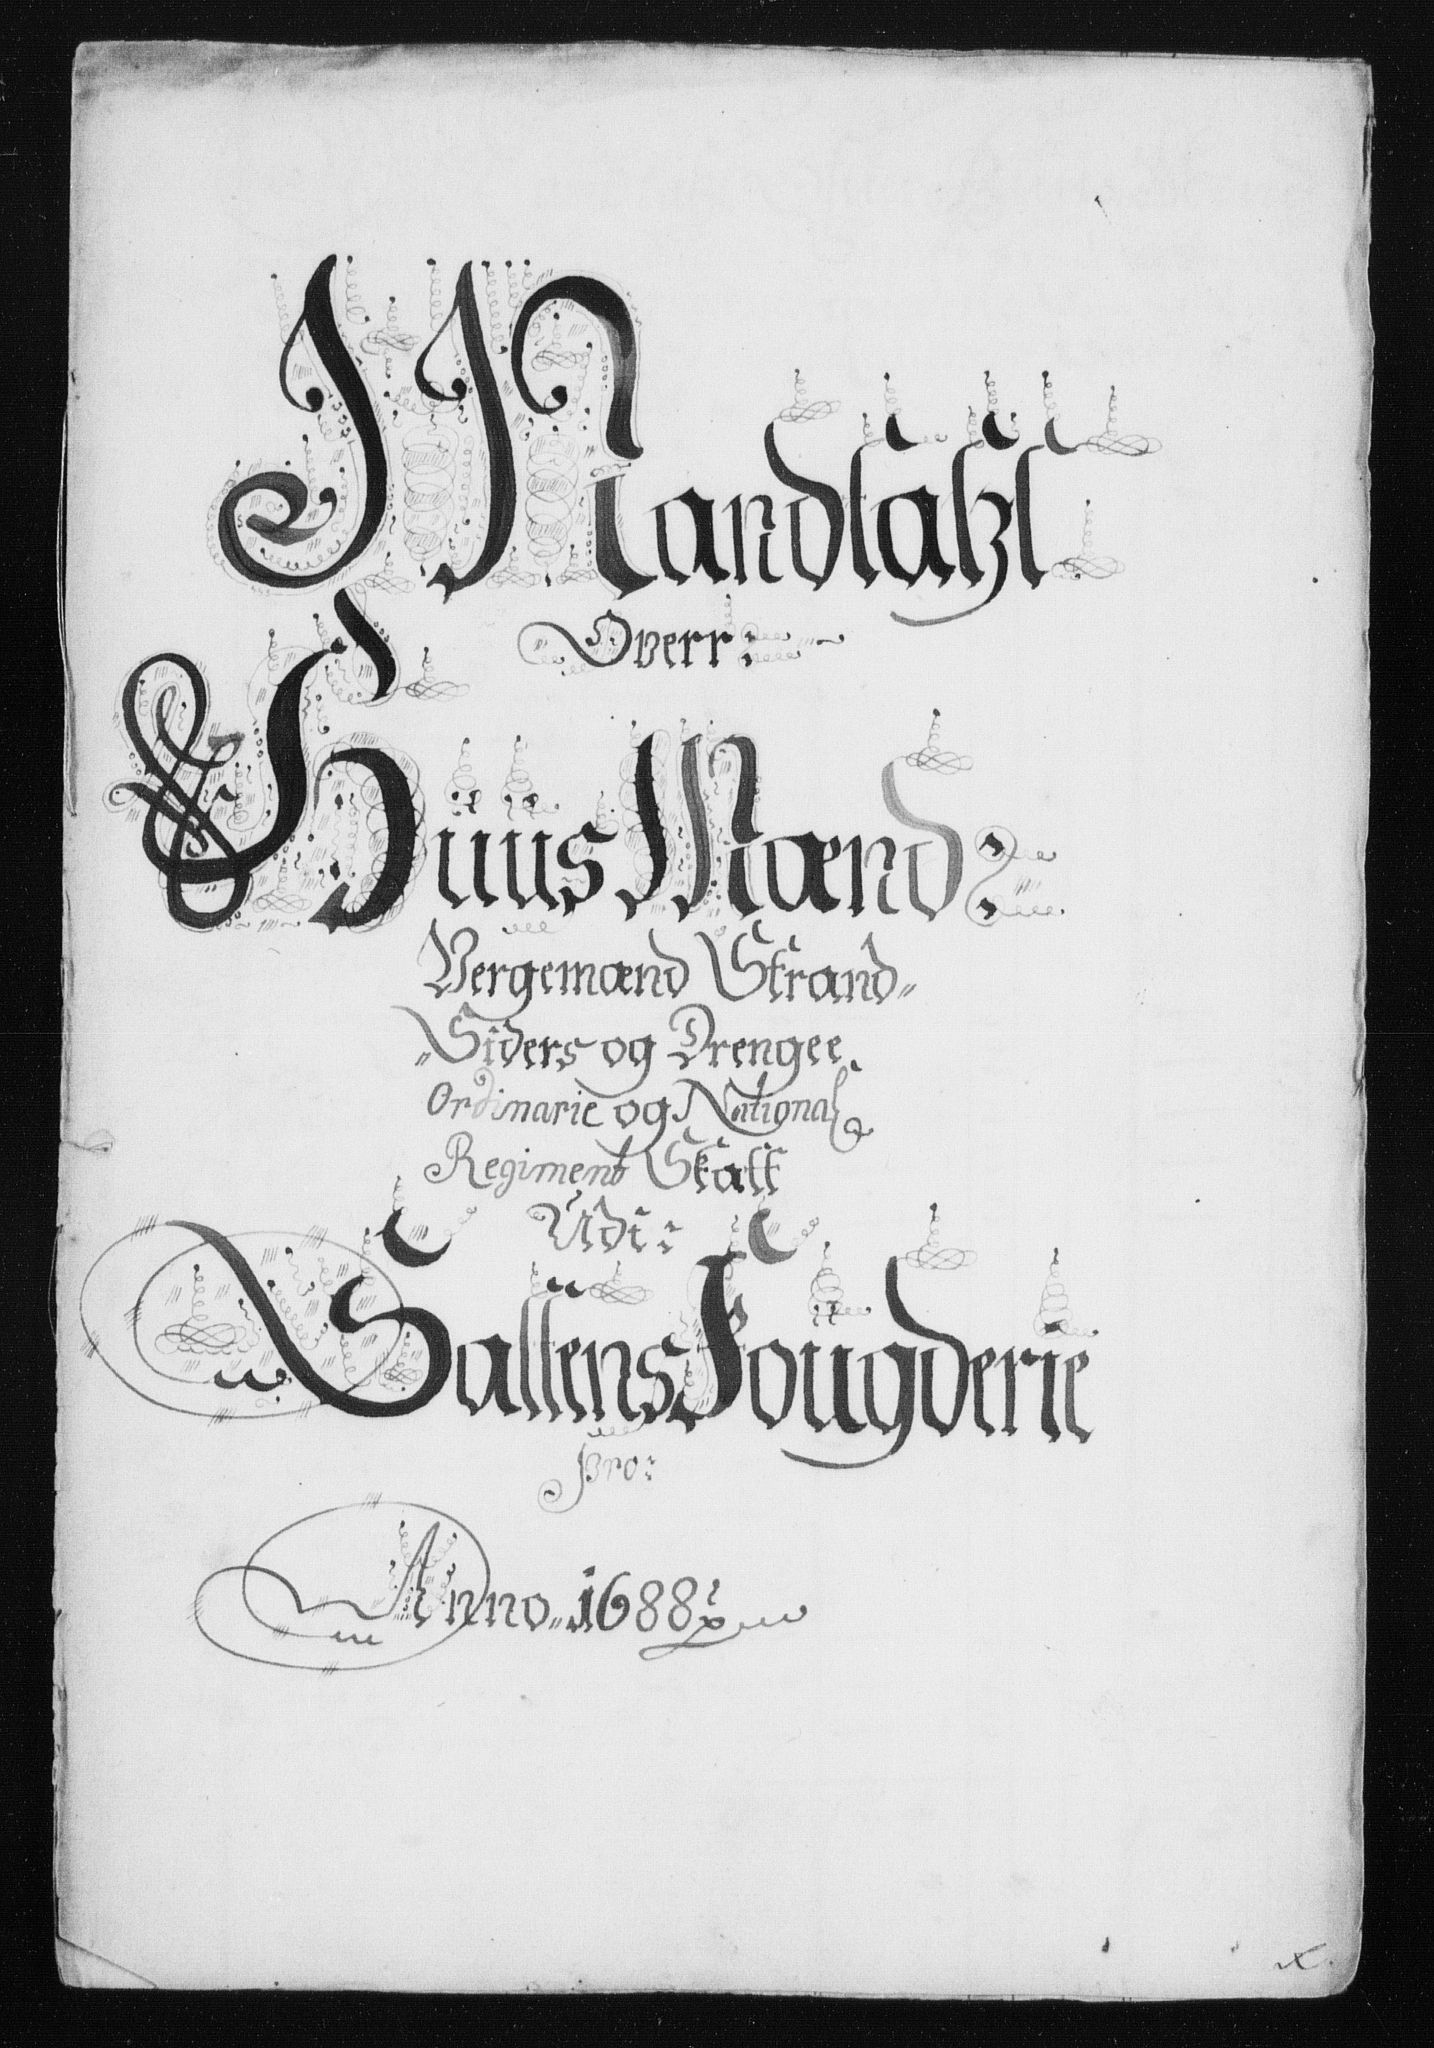 Mandtahl
Overr:
Huus Mænd:
Vergemænd Strand-
-Siders og Drengee
Ordinarie og National
Regiment Skatt
Udi:
Saltens Fougderie
pro:
Anno. 1688